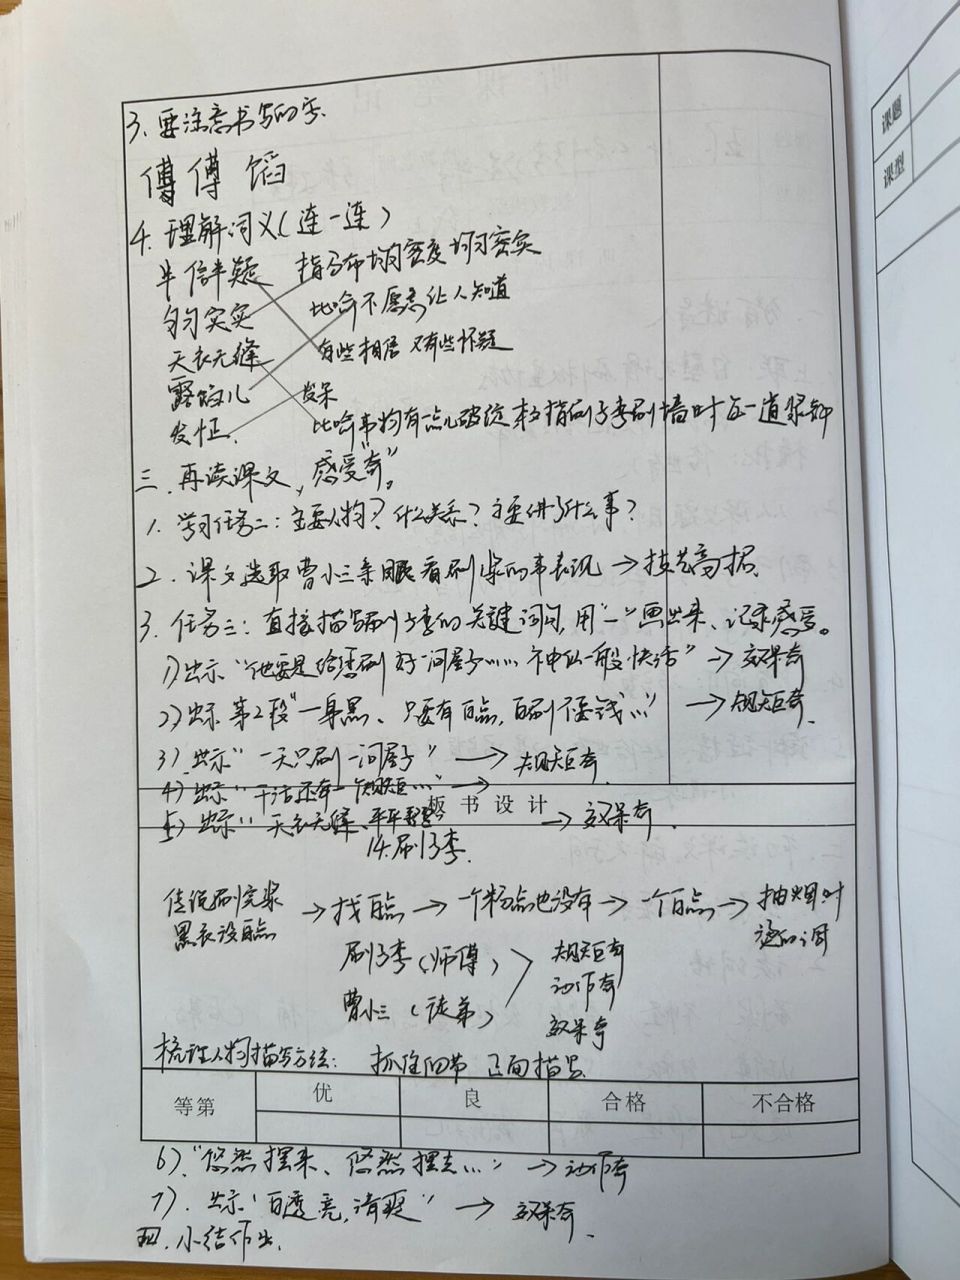 3、要注意书写的字.
傅 傅 馅
4. 理解词义(连一连)
半信半疑 指分布均匀密度均匀密实
匀匀实实 比喻不愿意让人知道
天衣无缝 有些相信又有些怀疑
露馅儿 发呆
发怔. 比喻事物有一点儿破绽 指刷子李刷墙时
三、再读课文,感受"奇"。
1. 学习任务二:主要人物?什么关系?主要讲了什么事?
2. 课文选取曹小三亲眼看刷浆的事表现→技艺高超.
3. 任务三:直接描写刷子李的关键词句,用"—"画出来、记录感受。
1)出示"他要是给您刷好一间屋子……神仙一般快活"→效果奇
2)出示第2段"一身黑、只要有白点,白刷不要钱…"→规矩奇.
3).出示"一天只刷一间屋子"→规矩奇.
4)出示"干活还有一个规矩…"→
板书设计
5)出示"天衣无缝、平平整整"→效果奇.
14.刷子李.
传说刷完浆黑衣没白点→找白点→一个粉点也没有→一个白点→抽烟时烧的洞
刷子李(师傅) 规矩奇
动作奇
曹小三(徒弟) 效果奇
梳理人物描写方法: 抓住细节 正面描写
等第 优 良 合格 不合格
6)."悠然摆来、悠然摆去…"→动作奇
7).出示"白透亮,清爽"→效果奇.
四.小结作业.
课题
课型